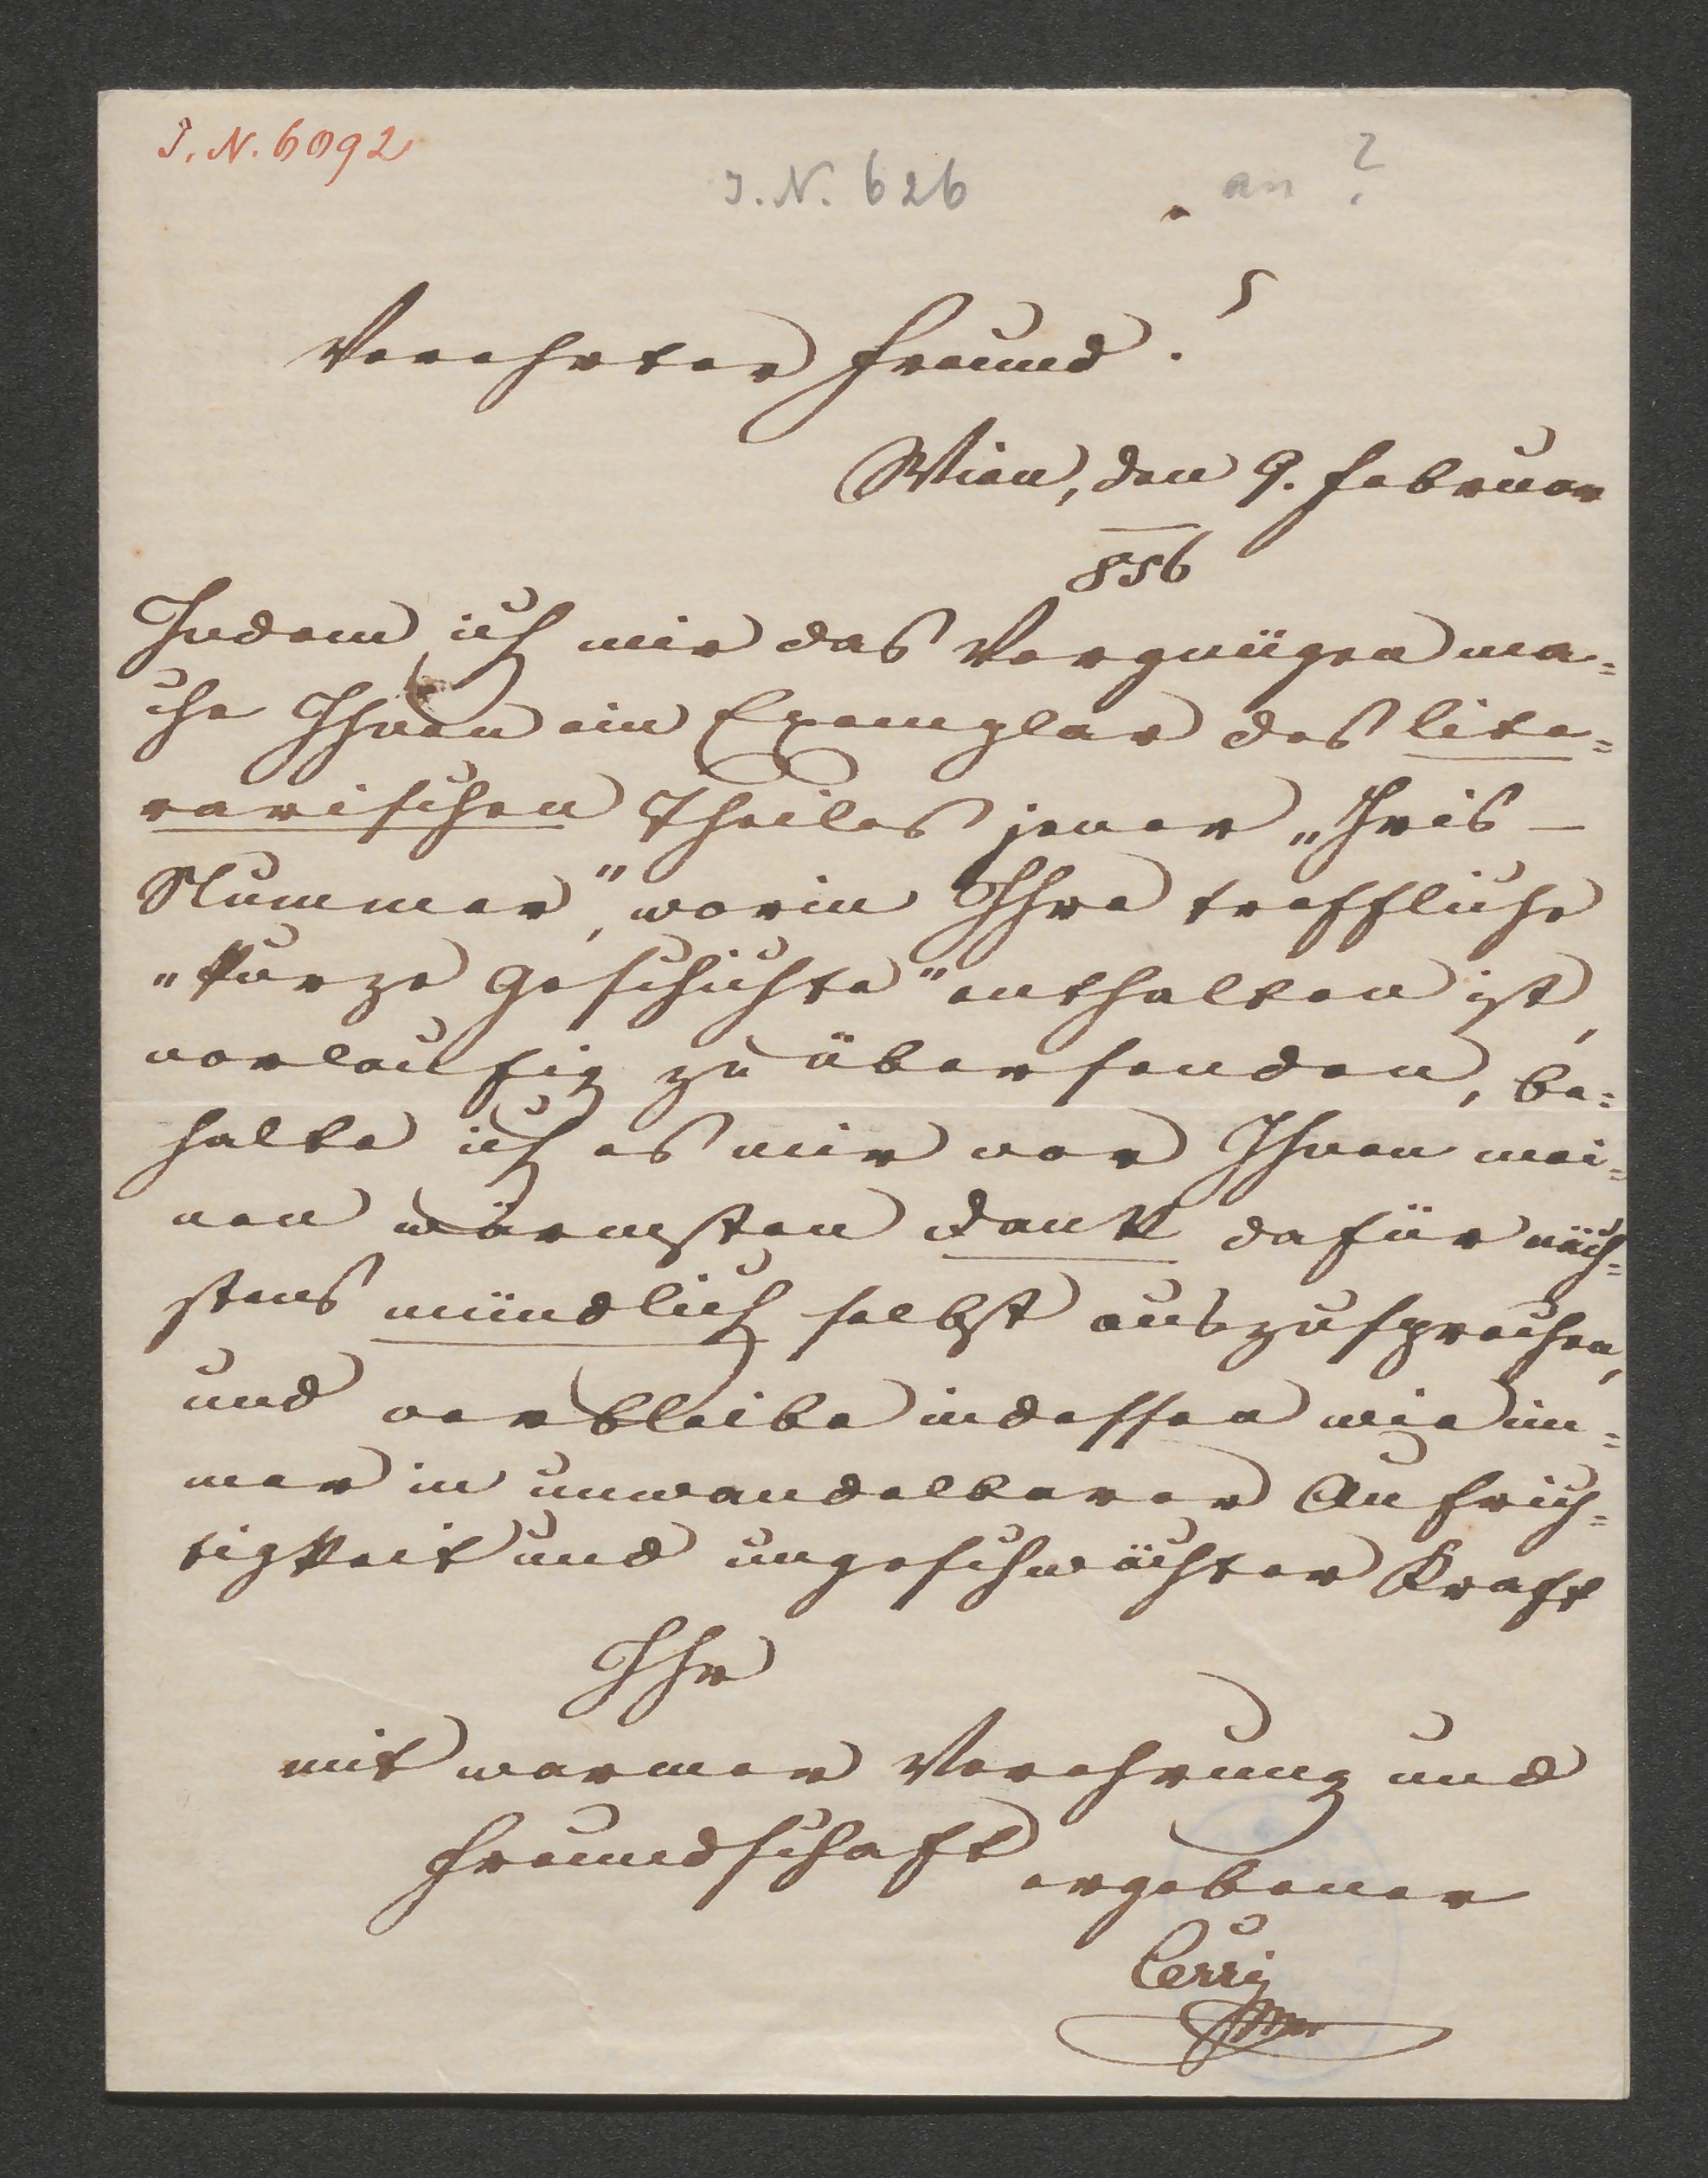 I. N. 6092
I. N. 626 an ?
Verehrter Freund!
Wien, den 9. Februar
856
Indem ich mir das Vergnügen ma=
che Ihnen ein Exemplar des lite=
rarischen Theiles jener „Iris-
Nummer," worin Ihre treffliche
„kurze Geschichte" enthalten ist,
vorläufig zu übersenden, be=
halte ich es mir vor Ihnen mei=
nen wärmsten Dank dafür näch=
stens mündlich selbst auszusprechen,
und verbleibe indessen wie im=
mer in unwandelbarer Aufrich=
tigkeit und ungeschwächter Kraft
Ihr
mit warmer Verehrung und
Freundschaft ergebener
Cerri